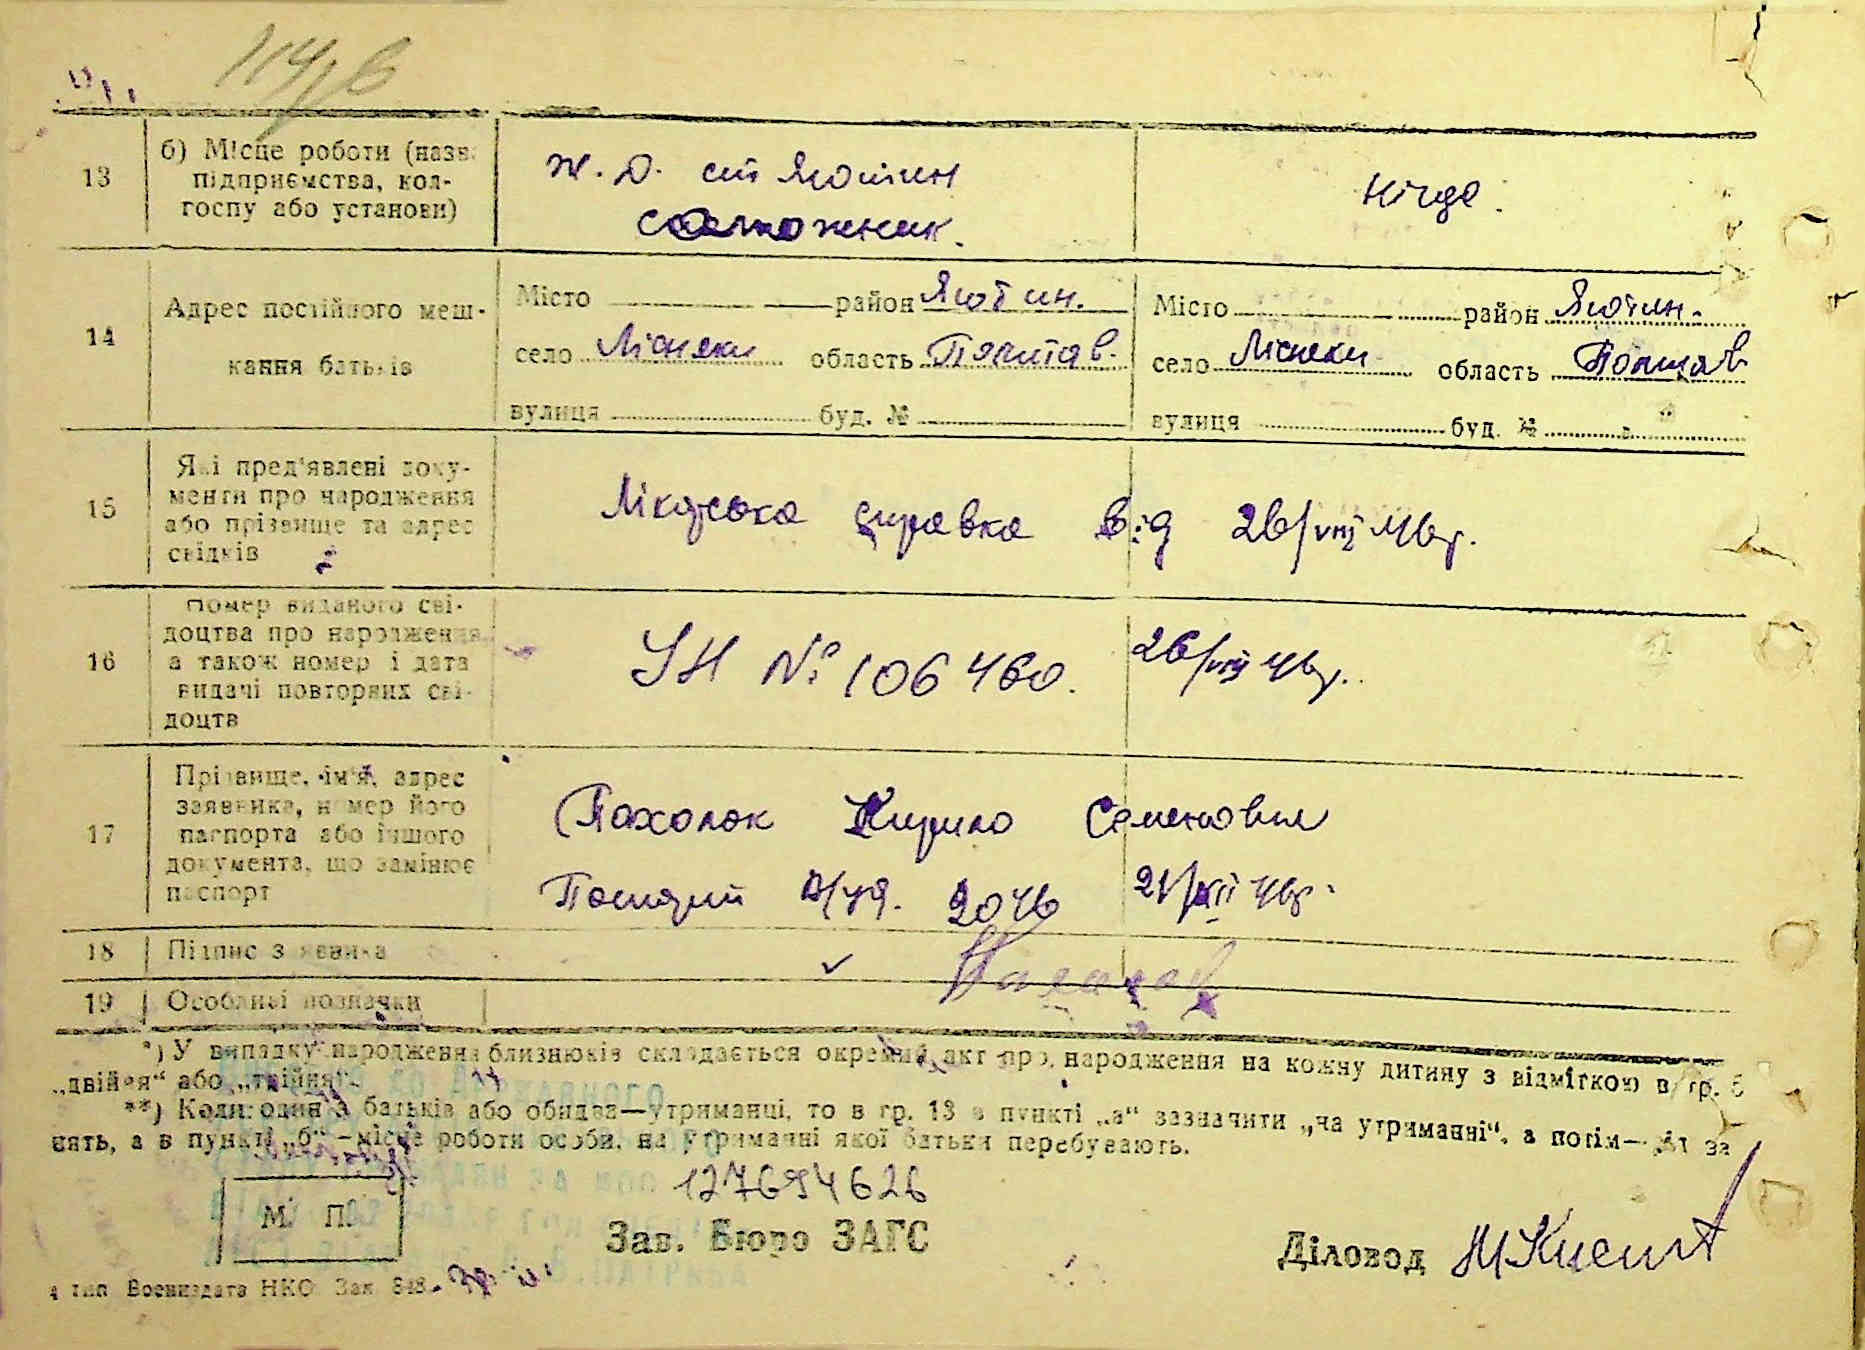 13
б) Місце роботи (назв
підприємства, кол-
госпу або установи)
ж. д. ст Яготин
Нігде.
14
Адрес постійного меш-
кання батьків
Місто район Яготин.
село Лісняки область Полтав.
вулиця буд. №
Місто район Яготин.
село Лісняки область Полтав
вулиця буд. №
15
Які пред'явлені доку-
менти про народження
або прізвище та адрес
свідків
Лікарська справка від 26/VIII 46р.
16
Номер виданого сві-
доцтва про народження
а також номер і дата
видачі повторних сві-
доцтв
УН № 106460. 26/VIII 46р.
17
Прізвище, ім'я, адрес
заявника, номер його
паспорта або іншого
документа, що замінює
паспорт
Пахолок Кирило Семенович
2046 46р.
18
Підпис заявника
19
Особливі позначки
*) У випадку народження близнюків складається окремий акт про народження на кожну дитину з відміткою в гр. 6
„двійня“ або „трійня“.
**) Коли один з батьків або обидва—утриманці, то в гр. 13 в пункті „а“ зазначити „на утриманні“, а потім— за
нять, а в пункті „б“—місце роботи особи, на утриманні якої батьки перебувають.
127694626
М. П.
Зав. Бюро ЗАГС
Діловод
тип Воениздата НКО Зак 848